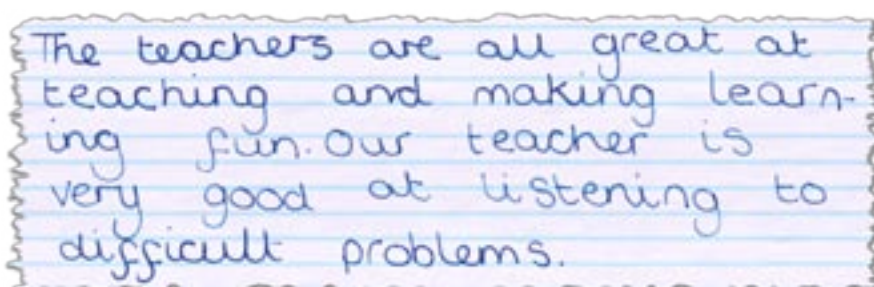 The teachers are all great at
teaching and making learn-
ing fun. Our teacher is
very good at listening to
difficult problems.